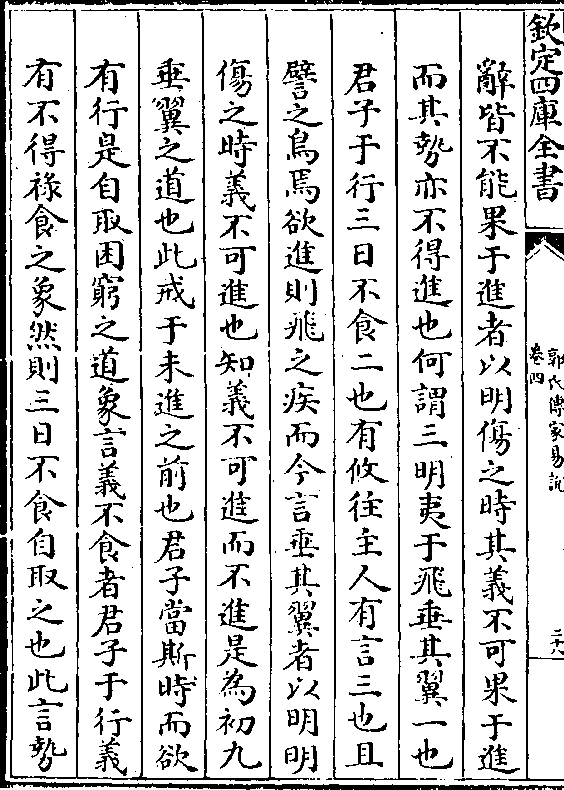 欽定四庫全書
郭氏傳家易說
卷四
二十八
辭皆不能果于進者以明傷之時其義不可果于進
而其勢亦不得進也何謂三明夷于飛垂其翼一也
君子于行三日不食二也有攸往主人有言三也且
譬之鳥焉欲進則飛之疾而今言垂其翼者以明明
傷之時義不可進也知義不可進而不進是為初九
垂翼之道也此戒于未進之前也君子當斯時而欲
有行是自取困窮之道象言義不食者君子于行義
有不得祿食之象然則三日不食自取之也此言勢